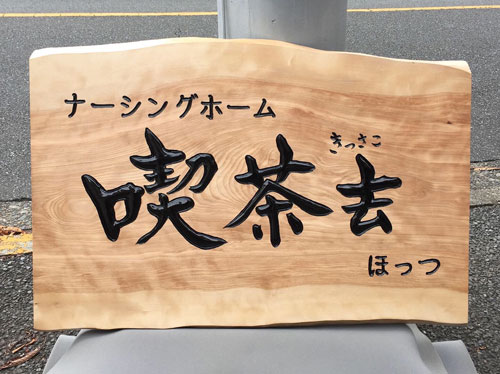 ナーシングホーム
きっさこ
喫茶去
ほっつ